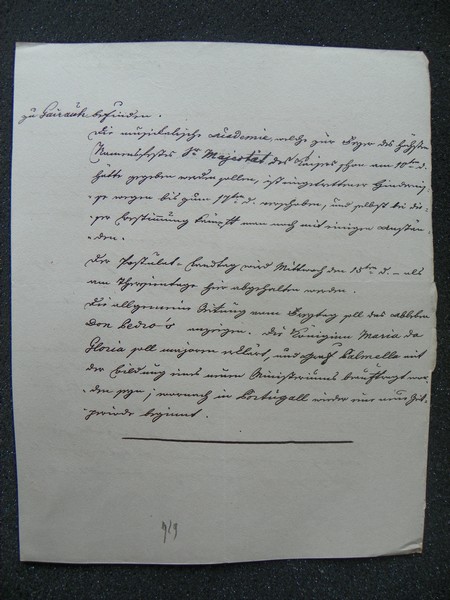 zu Baireuth befinden.
Die musikalische Academie, welche zur Feyer des höchsten
Namensfestes Sr Majestät des Kaisers schon am 10ten d.
hätte gegeben werden sollen, ist eingetrettener Hindernis-
se wegen bis zum 17ten d. verschoben, und selbst bei die-
ser Bestimmung kämpft man noch mit einigen Anstän-
den.
Der Postulat-Landtag wird Mittwoch den 15ten d. – als
am Theresientage hier abgehalten werden.
Die allgemeine Zeitung vom Freytag soll das Ableben
Don Pedro's anzeigen. Die Königinn Maria da
Gloria soll majoren erklärt, und Graf Palmella mit
der Bildung eines neuen Ministeriums beauftragt wor-
den seyn, wornach in Portugall wieder eine neue Zeit-
periode beginnt.